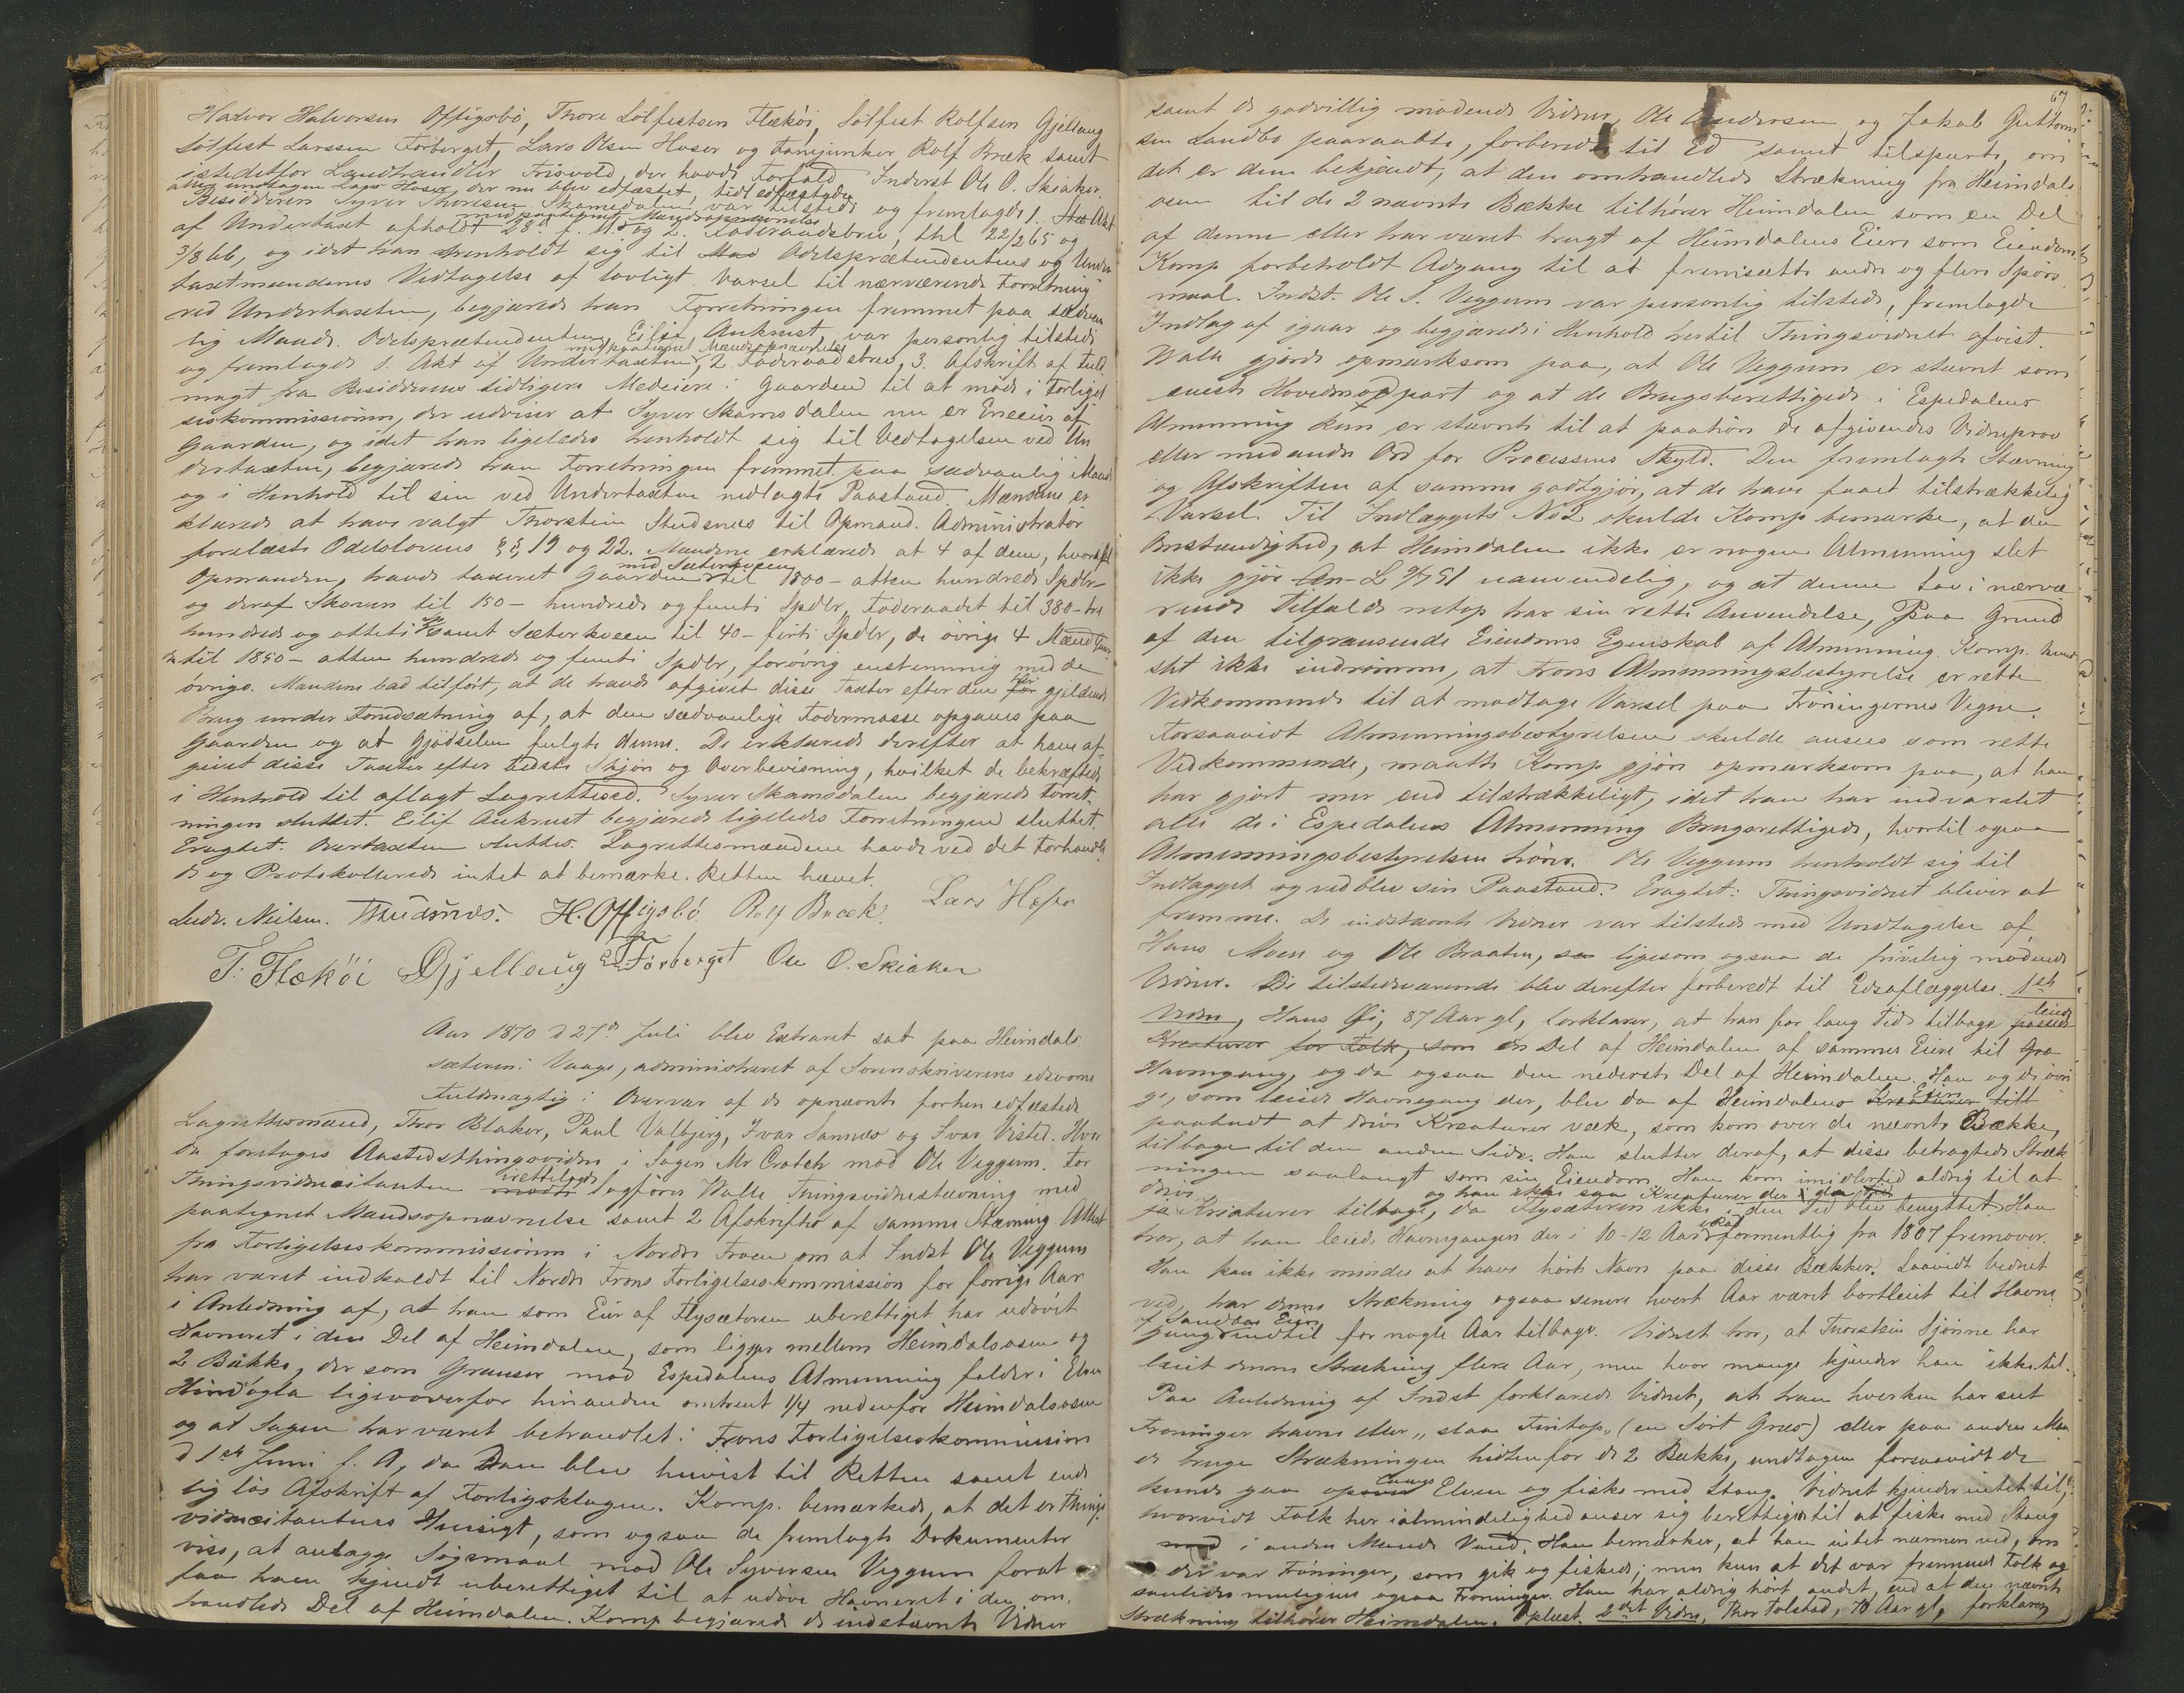 Halvor Halvorsen Offigsbö, Thore Sölfestsen Flækøi, Sölfest Rolfsen Gjellaug
Sölfest Larssen Förberget, Lars Olsen Hosar og Fanejunker Rolf Bræk samt
istedetfor Landhandler Frisvold, der havde Forfald Inderst Ole O. Skiaker.
alle undtagen Lars Hosar, der nu blev edfæstet, tidl edfæstede
Besidderen Syver Thoresen Skamsdalen var tilstede og fremlagde 1. Akt
med paategnet Mandsopnævnelse
af Undertaxt afholdt 28de f. M. og 2. Föderaadsbrev, thl 22/2 65 og
3/8 66, og idet han henholdt sig til Odelsprætendentens og Under
taxtmændenes Vedtagelse af lovligt Varsel til nærværende Forretning
ved Undertaxten, begjærede han Forretningen fremmet paa sædvan
lig Maade. Odelsprætendenten Eilif Aukrust var personlig tilstede
med paategnet Mandsopnævnelse
og fremlagde 1. Akt af Undertaxten, 2 Föderaadsbrev, 3. Afskrift af Fuld
magt fra Besidderens tidligere Medeiere i Gaarden til at möde i Forligel
seskommissionen, der udviser at Syver Skamsdalen nu er Eneeier af
Gaarden, og idet han ligeledes henholdt sig til Vedtagelsen ved Un
dertaxten, begjærede han Forretningen fremmet paa sædvanlig Maade
og i Henhold til sin ved Undertaxten nedlagte Paastand. Mændene er
klærede at have valgt Thorstein Studsnes til Opmand. Administrator
forelæste Odelslovens §§ 19 og 22. Mændene erklærede at 4 af dem, hvoriblt
med Sæterkveen
Opmanden, havde taxeret Gaarden til 1800 - atten hundrede Spdlr -
og deraf Skoven til 150 - hundrede og femti Spdlr, Föderaadet til 380 - tre
hundrede og otteti Sp samt Sæterkveen til 40 - firti Spdlr, de övrige 4 Mænd Gaar
den til 1850 - atten hundrede og femti Spdlr, forövrig enstemmig med de
övrige. Mændene bad tilfört, at de havde afgivet disse Taxter efter den her gjeldende
Brug under Forudsætning af, at den sædvanlige Fodermasse opgaves paa
Gaarden og at Gjödselen fulgte denne. De erklærede derefter at have af
givet disse Taxter efter bedste Skjön og Overbevisning, hvilket de bekræftede
i Henhold til aflagt Lagretteed. Syver Skamsdalen begjærede Forret-
ningen sluttet. Eilif Aukrust begjærede ligeledes Forretningen sluttet.
Eragtet: Overtaxten sluttes. Lagrettesmændene havde ved det Forhandle
de og Protokollerede intet at bemærke. Retten hævet.
Ludv. Neilsen. ThStudsnes. H. Offigsbö Rolf Bræk. Lars Hosar
T: Flæköi SGjellaug S L Förberget Ole O. Skiaker
Aar 1870 d 27de Juli blev Extraret sat paa Heimdals
sæteren i Vaage, administreret af Sorenskriverens edsvorne
Fuldmægtig i Overvær af de opnævnte forhen edfæstede
Lagrettesmænd, Thor Blaker, Paul Valbjerg, Ivar Sannes og Ivar Visted. Hvor
da foretoges Aastedsthingsvidne i Sagen Mr Crotch mod Ole Veggum. For
iretteslagde
Thingsvidnecitanten mødte Sagförer Walle, Thingsvidnestævning med
paategnet Mandsopnævnelse samt 2 Afskrifter af samme Stævning Attest
fra Forligelseskommissionen i Nordre Froen om at Indst Ole Veggum
har været indkaldt til Nordre Frons Forligelseskommission for forrige Aar
i Anledning af, at han som Eier af Flysæteren uberettiget har udövet
Havneret i den Del af Heimdalen, som ligger mellem Heimdalsosen og
2 Bække, der som Grænser mod Espedalens Almenning falder i Elven
Hindögla ligeoverfor hinanden omtrent 1/4 nedenfor Heimdalsosen
og at Sagen har været behandlet i Frons Forligelseskommission
d 1ste Juni f. A, da den blev henvist til Retten samt ende
lig lös Afskrift af Forligsklagen. Komp. bemærkede, at det er Things
vidnecitantens Hensigt, som ogsaa de fremlagte Dokumenter
vise, at anlægge Sögsmaal mod Ole Syversen Veggum forat
faa ham kjendt uberettiget til at udöve Havneret i den om
handlede Del af Heimdalen. Komp begjærede de indstævnte Vidner
67
samt de godvillig mödende Vidner, Ole Andersen og Jakob Guttorm
sen Sandbo paaraabte, forberedt til Ed samt tilspurte, om
det er dem bekjendt, at den omhandlede Strækning fra Heimdals
osen til de 2 nævnte Bække tilhörer Heimdalen som en Del
af denne eller har været brugt af Heimdalens Eiere som Eiendom
Komp forbeholdt Adgang til at fremsætte andre og flere Spörs
maal. Indst. Ole S. Veggum var personlig tilstede, fremlagde
Indlæg af igaar og begjærede i Henhold hertil Thingsvidnet afvist.
Walle gjorde opmærksom paa, at Ole Veggum er stævnt som
eneste Hovedmodpart og at de Brugsberettigede i Espedalens
Almenning kun er stævnte til at paahöre de afgivende Vidneprov
eller med andre Ord for Processens Skyld. Den fremlagte Stævning
og Afskriften af samme godtgjör, at de have faaet tilstrækkelig
Varsel. Til Indlæggets No 2 skulde Komp bemærke, at den
Omstændighed, at Heimdalen ikke er nogen Almenning slet
ikke gjör L 9/7 51 uanvendelig, og at denne Lov i nærvæ
rende Tilfælde netop har sin rette Anvendelse, Paa Grund
af den tilgrænsende Eiendoms Egenskab af Almenning. Komp. kunde
slet ikke indrömme, at Frons Almenningsbestyrelse er rette
Vedkommende til at modtage Varsel paa Fröningernes Vegne.
Forsaavidt Almenningsbestyrelsen skulde ansees som rette
Vedkommende, maatte Komp gjöre opmærksom paa, at han
har gjort mer end tilstrækkeligt, idet han har indvarslet
alle de i Espedalens Almenning Brugsrettigede, hvortil ogsaa
Almenningsbestyrelsen hörer. Ole Veggum henholdt sig til
Indlægget og vedblev sin Paastand. Eragtet: Thingsvidnet bliver at
fremme. De indstævnte Vidner var tilstede med Undtagelse af
Hans Moen og Ole Braaten, ligesom ogsaa de frivillig mödende
Vidner. De tilstedeværende blev derefter forberedt til Edsaflæggelse. 1ste
Vidne, Hans Öi, 87 Aar gl, forklarer, at han for lang Tid tilbage leiede
Kreaturer for Folk, som en Del af Heimdalen af sammes Eiere til
Havnegang, og da ogsaa den nederste Del af Heimdalen. Han og de övri
ge, som leiede Havnegang der, blev da af Heimdalens Eiere
paabudt at drive Kreaturer væk, som kom over de nævnte Bække,
tilbage til den anden Side. Han slutter deraf, at disse betragtede Stræk
ningen saalangt som sin Eiendom. Han kom imidlertid aldrig til at
drive og han ikke saa Kreaturer der i den Tid
Kreaturer tilbage, da Flysæteren ikke i den Tid blev benyttet. Han
tror, at han leiede Havnegangen der i 10-12 Aar formentlig fra 1807 fremover.
Han kan ikke mindes at have hört Navn paa disse Bække. Saavidt Vidnet
ved, har denne Strækning ogsaa senere hvert Aar været bortleiet til Havne
af Sandbos Eiere
gang indtil for nogle Aar tilbage. Vidnet tror, at Thorstein Sjörine har
leiet denne Strækning flere Aar, men hvor mange kjender han ikke til.
Paa Anledning af Indst forklarede Vidnet, at han hverken har seet
Fröninger havne eller "slaa Fintop" (en Sort Græs) eller paa anden Maa
de bruge Strækningen hidtenfor de 2 Bække, undtagen forsaavidt de
langs
kunde gaa op Elven og fiske med Stang. Vidnet kjender intet til,
hvorvidt Folk her i almindelighed anser sig berettiget til at fiske med Stang
i anden Mands Vand. Han bemærker, at han intet nærmere ved, om
det var Fröninger, som gik og fiskede; men kun at det var fremmede Folk og
saaledes muligens ogsaa Fröninger. Han har aldrig hört andet, end at den nævnte
Strækning tilhörer Heimdalen. Oplæst. 2det Vidne, Thor Tolstad, 70 Aar gl, forklarer